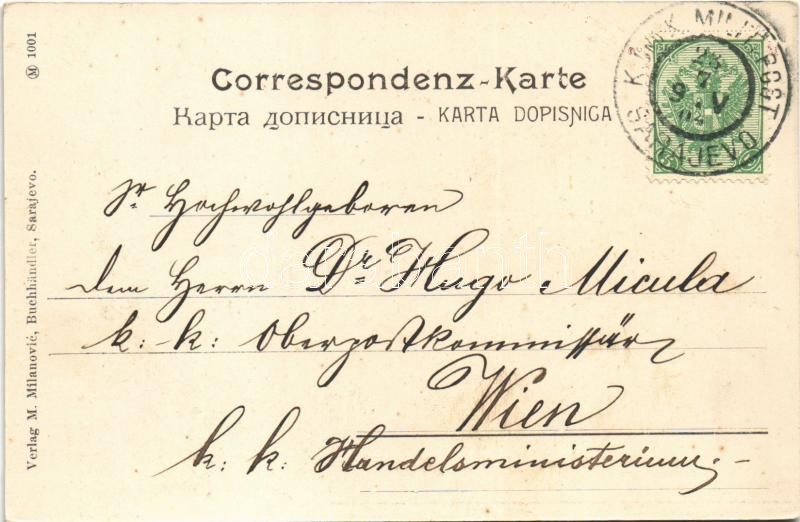 Correspondenz-Karte
Карта дописница - KARTA DOPISNICA
K. UND K. MILIT. POST
SARAJEVO
Sr Hochwohlgeboren
dem Herrn Dr Hugo Micula
k: k: Oberpostkommissär
Wien
k. k. Handelsministerium.-
Verlag M. Milanović, Buchhändler, Sarajevo.
M 1001